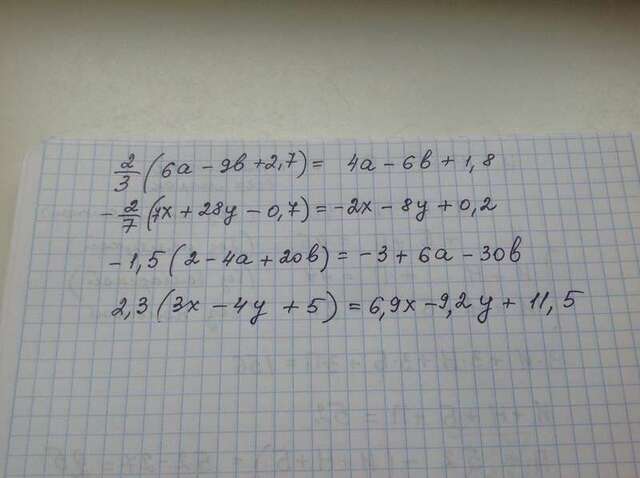 2/3 (6a - 9b + 2,7) = 4a - 6b + 1,8
- 2/7 (7x + 28y - 0,7) = -2x - 8y + 0,2
-1,5 (2 - 4a + 20b) = -3 + 6a - 30b
2,3 (3x - 4y + 5) = 6,9x - 9,2y + 11,5